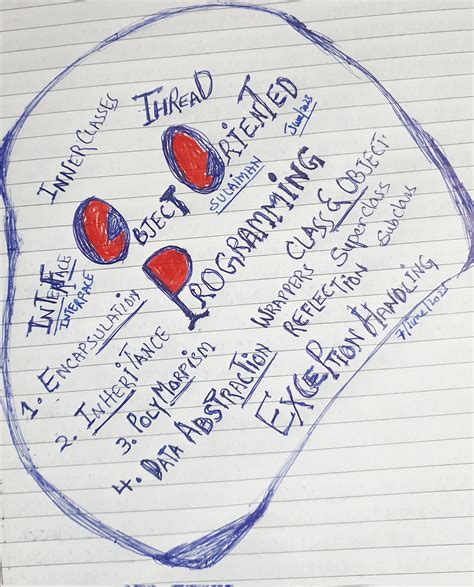 INNERCLASSES
THREAD
OBJECT ORIENTED
PROGRAMMING
SULAIMAN
INTERFACE
INTERFACE
1. ENCAPSULATION
2. INHERITANCE
3. POLYMORPISM
4. DATA ABSTRACTION
WRAPPERS CLASS & OBJECT
REFLECTION Superclass
Subclass
EXCEPTION HANDLING